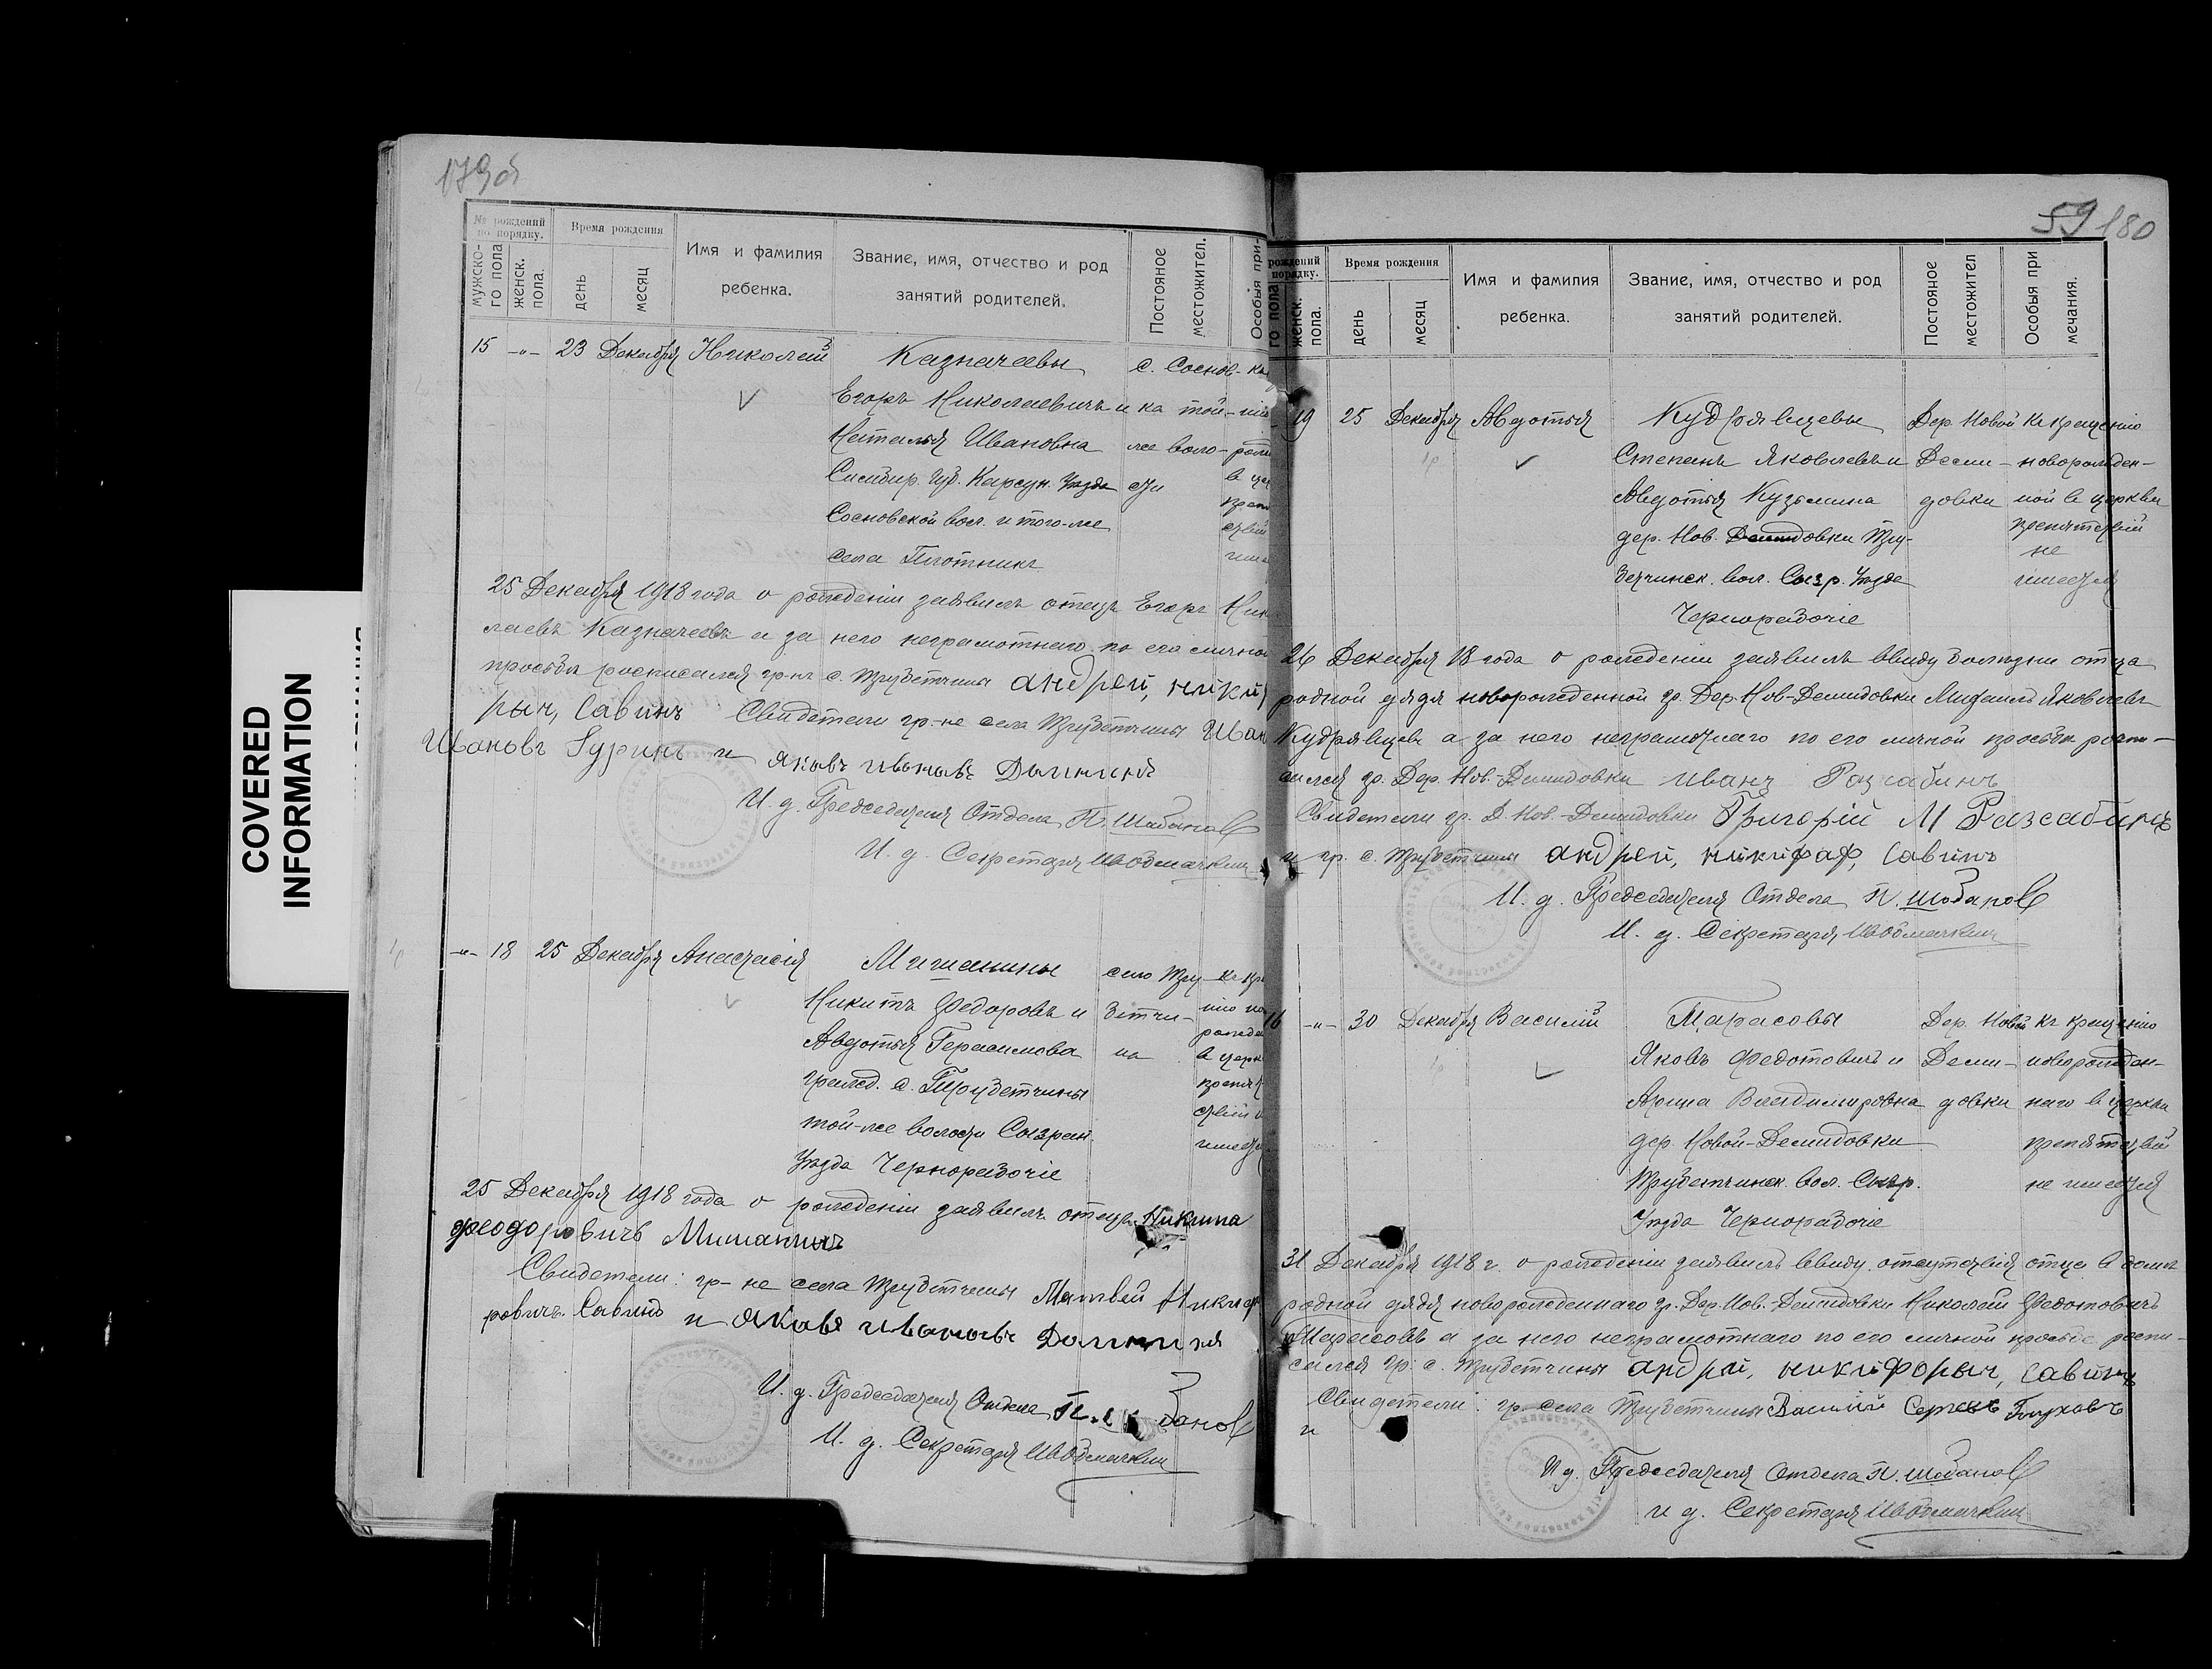 179об
№ рождений по порядку.
мужско-го пола
женск. пола.
Время рождения
день
месяц
Имя и фамилия ребенка.
Звание, имя, отчество и род занятий родителей.
Постояное местожител.
Особыя при-
15 -"- 23 Декабря Николай
Казначеевы
Егоръ Николаевичъ и
Наталья Ивановна
Симбир. Губ. Карсун. Уезда
Сосновской вол. и того-же
села Плотникъ
с. Соснов-
ка той-
же воло-
сти
25 Декабря 1918 года о рождении заявилъ отецъ Егоръ Нико
лаевъ Казначеевъ а за него неграмотнаго по его личной
просьбе росписался гр-нъ с. Трубетчины андрей, никиф
рыч, Савинъ Свидетели гр-не села Трубетчины Иван
Ивановъ Гуринъ и яковъ ивановъ
И. д. Председателя Отдела П. Шабанов
И. д. Секретаря
-"- 18 25 Декабря Анастасія
Мишанины
Никита Федоровъ и
Авдотья Герасимова
гражд. с. Трубетчины
той-же волости Сызран.
Уезда Чернорабочіе
село Тру-
бетчи-
на
25 Декабря 1918 года о рождении заявилъ отецъ Никита
Феодоровичъ Мишанинъ
Свидетели: гр-не села Трубетчины Матвей Никиф
ровичъ Савинъ и яковъ ивановъ
И. д. Председателя Отдела П. Шабанов
И. д. Секретаря
59 180
рождений порядку.
го пола
женск. пола.
Время рождения
день
месяц
Имя и фамилия ребенка.
Звание, имя, отчество и род занятий родителей.
Постояное местожител
Особыя при мечания.
19 25 Декабря Авдотья
Кудрявцевы
Степанъ Яковлевъ и
Авдотья Кузьмина
дер. Нов. Демидовки Тру-
бетчинск. вол. Сызр. Уезда
Чернорабочіе
Дер. Новой
Деми-
довки
Къ крещенію
новорожден-
ной в церкви
препятствий
не
имеется
26 Декабря 18 года о рождении заявилъ ввиду болезни отца
родной дядя новорожденной гр. Дер. Нов-Демидовки Михаилъ Яковлевъ
Кудрявцевъ а за него неграмотнаго по его личной просьбе роспи-
сался гр. Дер. Нов.-Демидовки Иванъ Разсабинъ
Свидетели гр. Д. Нов.-Демидовки Григорій М Разсабинъ
и гр. с. Трубетчины андрей, никифаф, Савинъ
И. д. Председателя Отдела П. Шабанов
И. д. Секретаря
16 -"- 30 Декабря Василій
Тарасовы
Яковъ Федотовичъ и
Арина Владимировна
дер. Новой-Демидовки
Трубетчинск. вол. Сызр.
Уезда Чернорабочіе
Дер. Новой
Деми-
довки
Къ крещенію
новорожден-
наго в церкви
препятствий
не имеется
31 Декабря 1918 г. о рождении заявилъ ввиду отсутствія отца в доме
родной дядя новорожденнаго гр. Дер. Нов.-Демидовки Николай Федотовичъ
Тарасовъ а за него неграмотнаго по его личной просьбе роспи-
сался гр. с. Трубетчины андрей, никифорыч, Савинъ
Свидетели: гр. села Трубетчины Василий Сергеевъ
и
И д. Председателя Отдела П. Шабанов
и д. Секретаря
COVERED
INFORMATION